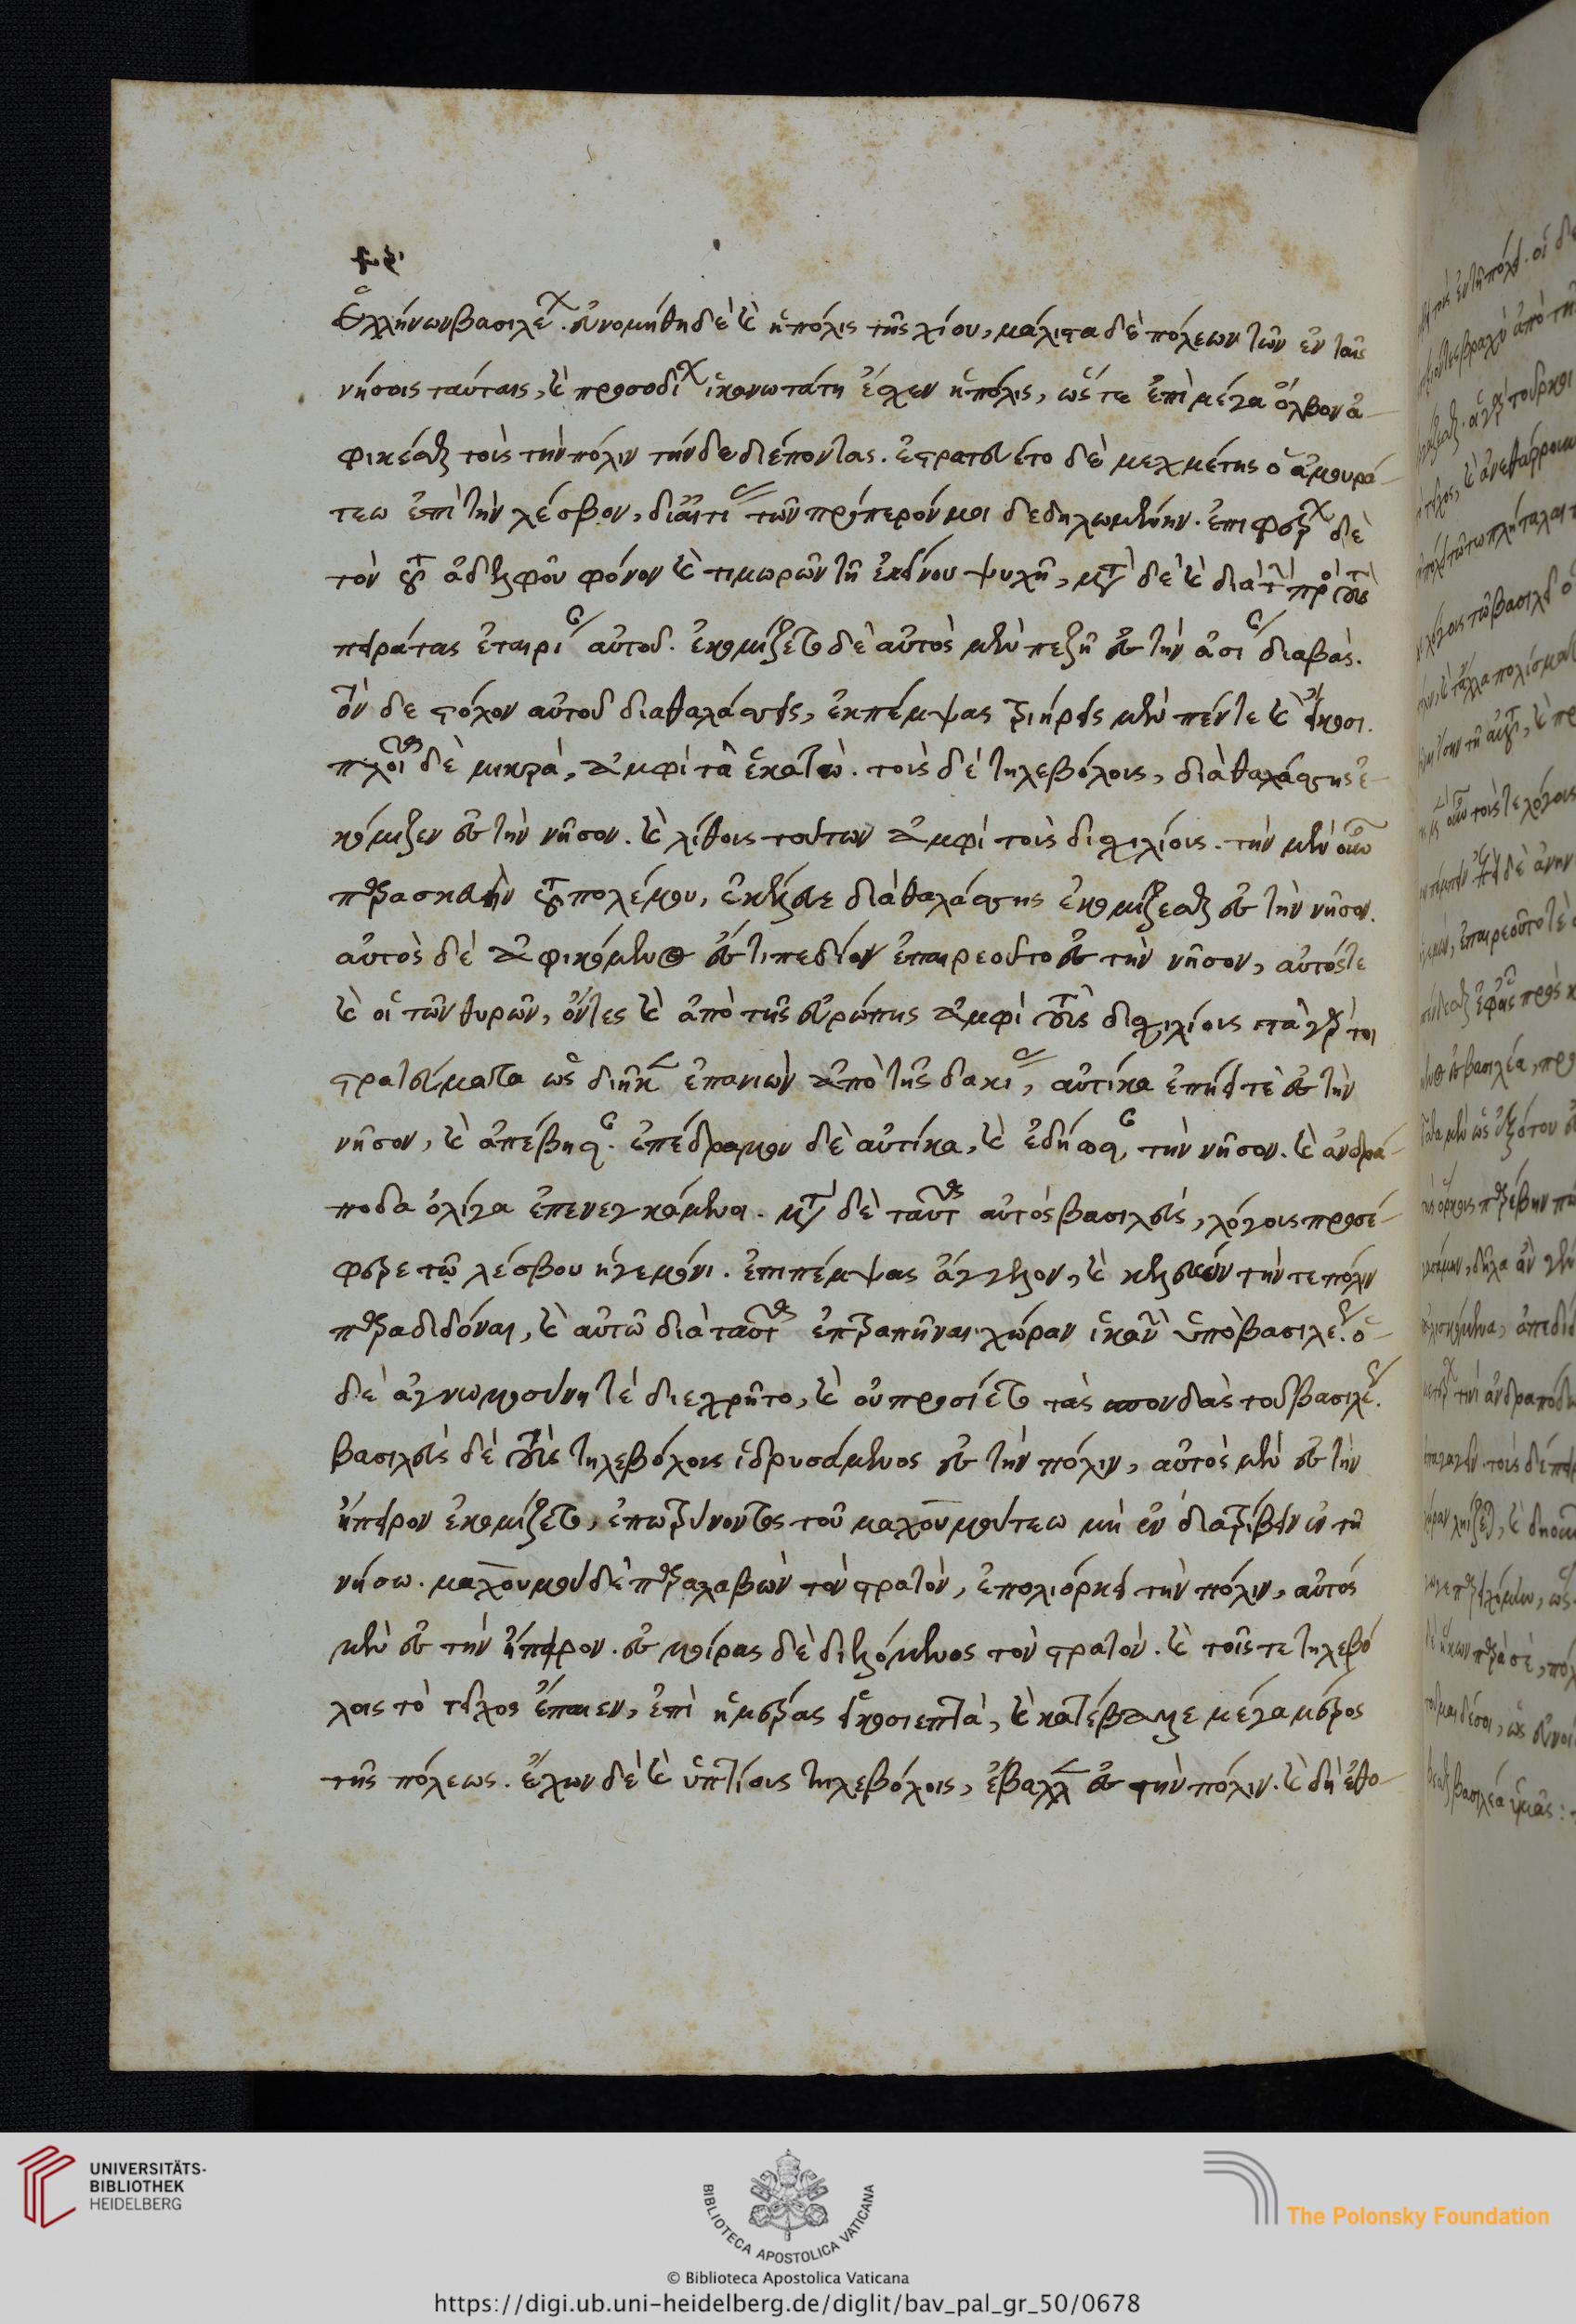 Ἑλλήνων βασιλέως. εὐνομήθη δὲ καὶ ἡ πόλις τῆς χίου, μάλιστα δὲ πόλεων τῶν ἐν ταῖς
νήσοις ταύταις, καὶ προσόδων ἱκανωτάτη ἔσχεν ἡ πόλις, ὥστε ἐπὶ μέγα ὄλβου ἀ-
φικέσθαι τοὺς τὴν πόλιν τήνδε διέποντας. ἐστρατεύετο δὲ μεχμέτης ὁ ἀμουρά-
τεω ἐπὶ τὴν λέσβον, δι' αἰτίαν τῶν πρότερόν μοι δεδηλωμένην. ἐπιφέρων δὲ
τὸν τοῦ ἀδελφοῦ φόνον καὶ τιμωρῶν τῇ ἐκείνου ψυχῇ, μετὰ δὲ καὶ διὰ τὴν πρὸς τοὺς
πειράτας ἑταιρίαν αὐτοῦ. ἐκομίζετο δὲ αὐτὸς μὲν πεζῇ ἐς τὴν ἀσίαν διαβάς.
τὸν δὲ στόλον αὐτοῦ διὰ θαλάσσης, ἐκπέμψας τριήρεις μὲν πέντε καὶ εἴκοσι.
πλοῖα δὲ μικρά, ἀμφὶ τὰ ἑκατόν. τοῖς δὲ τηλεβόλοις, διὰ θαλάσσης ἐ-
κόμιζεν ἐς τὴν νῆσον. καὶ λίθοις τούτων ἀμφὶ τοῖς δισχιλίοις. τὴν μὲν οὖν
παρασκευὴν τοῦ πολέμου, ἐκέλευε διὰ θαλάσσης ἐκομίζεσθαι ἐς τὴν νῆσον.
αὐτὸς δὲ ἀφικόμενος ἐς τι πεδίον ἐπαιρεούτο ἐς τὴν νῆσον, αὐτός τε
καὶ οἱ τῶν θυρῶν, ὄντες καὶ ἀπὸ τῆς εὐρώπης ἀμφὶ τοὺς δισχιλίους τὰ γάρ τοι
στρατεύματα ὡς διῆκεν ἐπανιὼν ἀπὸ τῆς δακίας, αὐτίκα ἐπῄει τὲ ἐς τὴν
νῆσον, καὶ ἀπέβησαν. ἐπέδραμον δὲ αὐτίκα, καὶ ἐδῄωσαν τὴν νῆσον. καὶ ἀνδρά-
ποδα ὀλίγα ἐπενεγκάμενοι. μετὰ δὲ ταῦτα αὐτὸς βασιλεὺς, λόγοις προσέ-
φερε τῷ λέσβου ἡγεμόνι. ἐπιπέμψας ἄγγελον, καὶ κελεύων τήν τε πόλιν
παραδιδόναι, καὶ αὐτῷ διὰ ταῦτα ἐπιτραπῆναι χώραν ἱκανὴν ὑπὸ βασιλέως. ὁ
δὲ ἀγνωμοσύνῃ τὲ διεχρῆτο, καὶ οὐ προσίετο τὰς σπονδὰς τοῦ βασιλέως.
βασιλεὺς δὲ τοὺς τηλεβόλους ἱδρυσάμενος ἐς τὴν πόλιν, αὐτὸς μὲν ἐς τὴν
ἤπειρον ἐκομίζετο, ἐποτρύνοντος τοῦ μαχουμούτεω μὴ ἐνδιατρίβειν ἐν τῇ
νήσῳ. μαχουμούτης δὲ παραλαβὼν τὸν στρατὸν, ἐπολιόρκει τὴν πόλιν, αὐτὸς
μὲν ἐς τὴν ἤπειρον. ἐς μοίρας δὲ διελόμενος τὸν στρατόν. καὶ τοῖς τε τηλεβό
λοις τὸ τεῖχος ἔπαιεν, ἐπὶ ἡμέρας εἰκοσιεπτά, καὶ κατέβαλε μέγα μέρος
τῆς πόλεως. ἔχων δὲ καὶ ὑπτίους τηλεβόλους, ἐβαλλεν ἐς τὴν πόλιν. καὶ δὴ ἐθο-
UNIVERSITÄTS-
BIBLIOTHEK
HEIDELBERG
BIBLIOTECA APOSTOLICA VATICANA
The Polonsky Foundation
© Biblioteca Apostolica Vaticana
https://digi.ub.uni-heidelberg.de/diglit/bav_pal_gr_50/0678